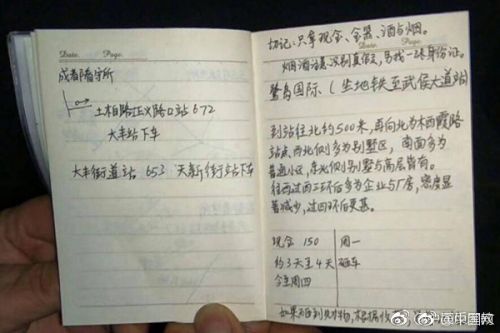 Date. Page.
成都看守所
土柏路正义路口站 672
大丰站下车
大丰街道站 653 天新街站下车
切记：只拿现金、金器、酒与烟。
Date. Page.
烟酒注意识别真假，另找一张身份证。
鹭岛国际（坐地铁至武侯大道站）
到站往北约500米，再向北为木西霞路
站点，西北侧多为别墅区，南面多为
普通小区，东北侧别墅与高层皆有。
往西过西三环后多为企业与厂房，密度显
著减少，过四环后更甚。
现金 150 周一
约3天至4天 砸车
今至周四
如果不自到财物，根据
中国教